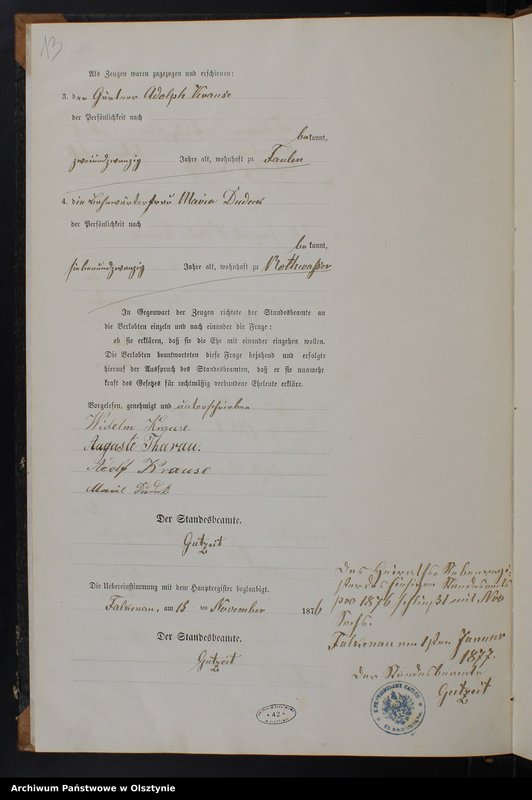 13
Als Zeugen waren zugezogen und erschienen:
3. der Gärtner Adolph Krause
der Persönlichkeit nach
bekannt,
zweiundzwanzig Jahre alt, wohnhaft zu Faulen
4. die Bahnwärterfrau Maria Dudeck
der Persönlichkeit nach
bekannt,
siebenundzwanzig Jahre alt, wohnhaft zu Rothwasser
In Gegenwart der Zeugen richtete der Standesbeamte an
die Verlobten einzeln und nach einander die Frage:
ob sie erklären, daß sie die Ehe mit einander eingehen wollen.
Die Verlobten beantworteten diese Frage bejahend und erfolgte
hierauf der Ausspruch des Standesbeamten, daß er sie nunmehr
kraft des Gesetzes für rechtmäßig verbundene Eheleute erkläre.
Vorgelesen, genehmigt und unterschrieben
Wilhelm Krause.
Auguste Tharau.
Adolf Krause
Marie Dudek
Der Standesbeamte.
Gutzeit
Die Uebereinstimmung mit dem Hauptregister beglaubigt.
Falkenau, am 15 ten November 1876
Der Standesbeamte.
Gutzeit
Das Heiraths-Nebenregi-
ster des hiesigen Standesamts
pro 1876 schließt mit No
Sechs.
Falkenau am 1sten Januar
1877.
Der Standesbeamte
Gutzeit
42
Archiwum Państwowe w Olsztynie